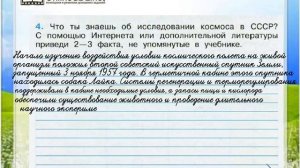 4. Что ты знаешь об исследовании космоса в СССР?
С помощью Интернета или дополнительной литературы
приведи 2—3 факта, не упомянутые в учебнике.
Начало изучению воздействия условий космического полета на живой
организм положил второй советский искусственный спутник Земли,
запущенный 3 ноября 1957 года. В герметичной кабине этого спутника
находилась собака Лайка. Системы регенерации и терморегулирования
поддерживали в кабине необходимые условия, а запасы пищи и кислорода
обеспечили существование животного и проведение длительного
научного эксперимо